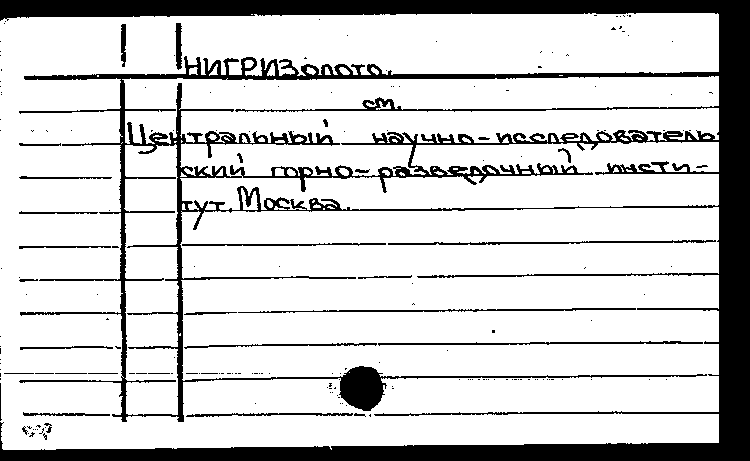 НИГРИЗолото.
см.
Центральный научно-исследователь-
ский горно-разведочный инсти-
тут. Москва.